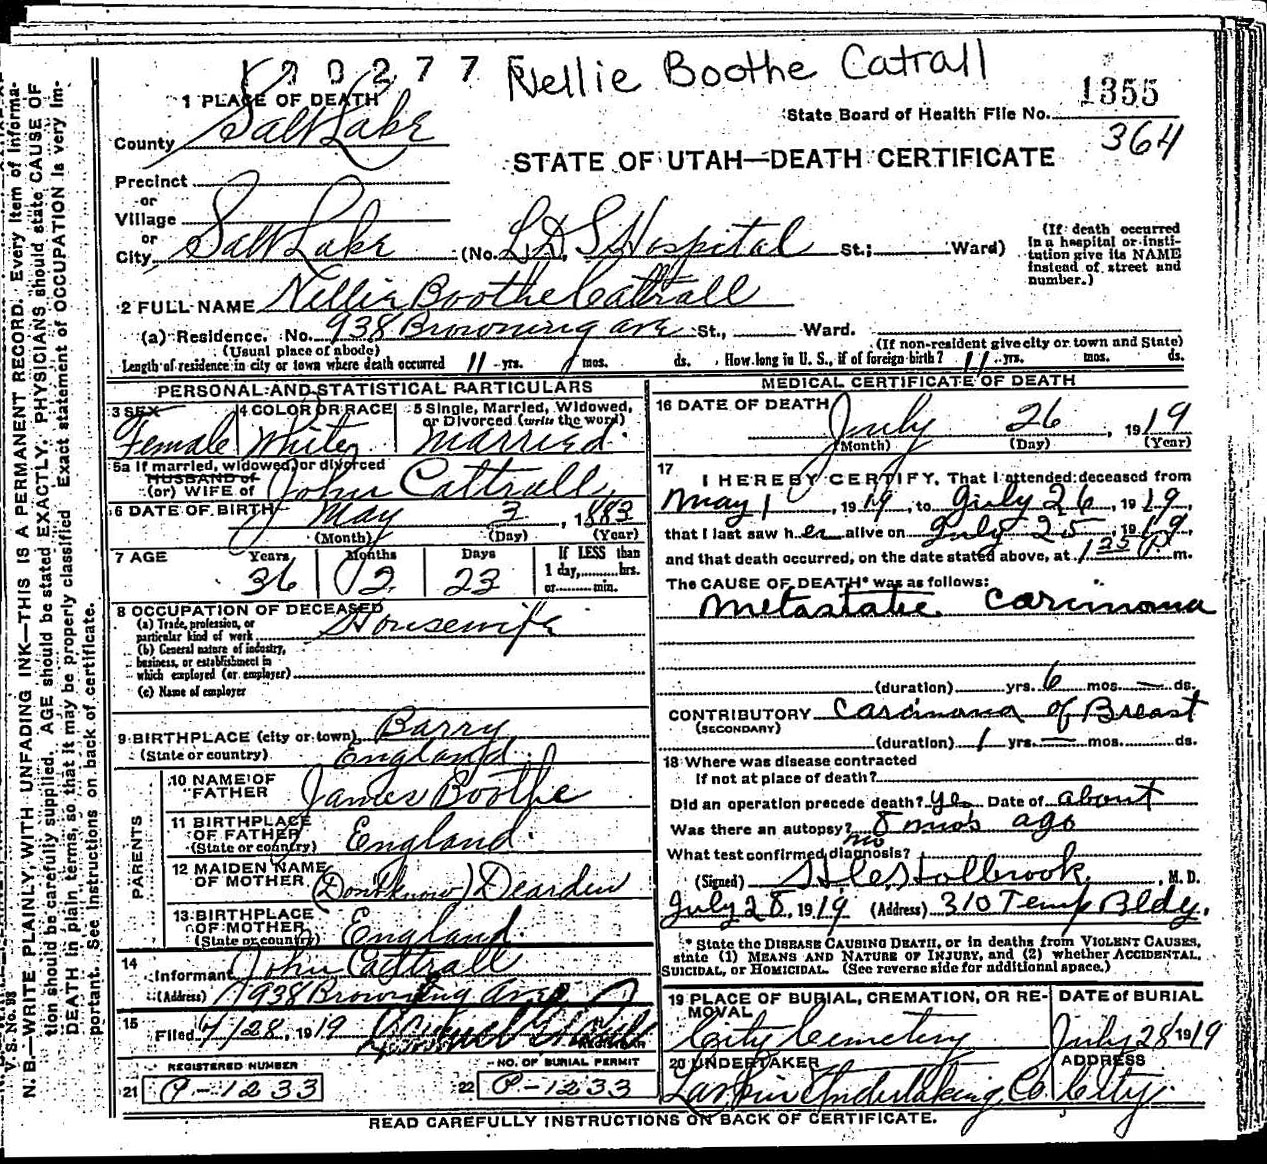 Nellie Boothe Catrall
1355
State Board of Health File No.
364
STATE OF UTAH—DEATH CERTIFICATE
1 PLACE OF DEATH
County Salt Lake
Precinct
or
Village
or
City Salt Lake (No. L.D.S Hospital St.; Ward)
(If death occurred in a hospital or institution give its NAME instead of street and number.)
2 FULL NAME Nellie Boothe Cattrall
(a) Residence. No. 938 Browning ave St., Ward.
(Usual place of abode) (If non-resident give city or town and State)
Length of residence in city or town where death occurred 11 yrs. mos. ds. How long in U. S., if of foreign birth? 11 yrs. mos. ds.
PERSONAL AND STATISTICAL PARTICULARS
3 SEX Female
4 COLOR OR RACE White
5 Single, Married, Widowed, or Divorced (write the word) Married
5a If married, widowed, or divorced
HUSBAND of
(or) WIFE of John Cattrall
6 DATE OF BIRTH May 3, 1883
(Month) (Day) (Year)
7 AGE Years 36 Months 2 Days 23
If LESS than 1 day, hrs. or min.
8 OCCUPATION OF DECEASED
(a) Trade, profession, or particular kind of work Housewife
(b) General nature of industry, business, or establishment in which employed (or employer)
(c) Name of employer
9 BIRTHPLACE (city or town) Barry
(State or country) England
PARENTS
10 NAME OF FATHER James Boothe
11 BIRTHPLACE OF FATHER (State or country) England
12 MAIDEN NAME OF MOTHER (Don't know) Dearden
13 BIRTHPLACE OF MOTHER (State or country) England
14 Informant John Cattrall
(Address) 938 Browning Ave
15 Filed 7/28, 1919
REGISTERED NUMBER
21 P-1233
NO. OF BURIAL PERMIT
22 P-1233
MEDICAL CERTIFICATE OF DEATH
16 DATE OF DEATH July 26, 1919
(Month) (Day) (Year)
17 I HEREBY CERTIFY, That I attended deceased from
May 1, 1919, to July 26, 1919,
that I last saw her alive on July 25, 1919,
and that death occurred, on the date stated above, at 1 25 P m.
The CAUSE OF DEATH* was as follows:
metastatic carcinoma
(duration) yrs. 6 mos. — ds.
CONTRIBUTORY Carcinoma of Breast
(SECONDARY)
(duration) 1 yrs. — mos. ds.
18 Where was disease contracted
If not at place of death?
Did an operation precede death? yes Date of about
8 mos ago
Was there an autopsy? no
What test confirmed diagnosis?
(Signed) Holbrook, M. D.
July 28, 1919 (Address) 310 Temp Bldg.
* State the DISEASE CAUSING DEATH, or in deaths from VIOLENT CAUSES,
state (1) MEANS AND NATURE OF INJURY, and (2) whether ACCIDENTAL,
SUICIDAL, or HOMICIDAL. (See reverse side for additional space.)
19 PLACE OF BURIAL, CREMATION, OR REMOVAL City Cemetery
DATE of BURIAL July 28 1919
20 UNDERTAKER Larkin Undertaking Co.
ADDRESS City
READ CAREFULLY INSTRUCTIONS ON BACK OF CERTIFICATE.
V. S. No. 98
N. B.—WRITE PLAINLY, WITH UNFADING INK—THIS IS A PERMANENT RECORD. Every item of information
should be carefully supplied. AGE should be stated EXACTLY. PHYSICIANS should state CAUSE OF
DEATH in plain terms, so that it may be properly classified. Exact statement of OCCUPATION is very important.
See instructions on back of certificate.